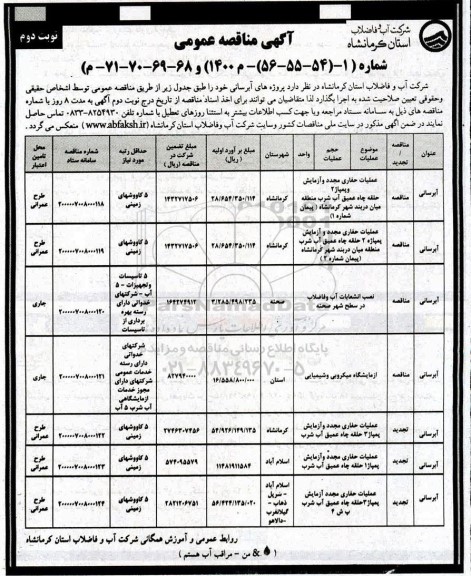 شرکت آب و فاضلاب
استان کرمانشاه
آگهی مناقصه عمومی
نوبت دوم
شماره (۱-(۵۴-۵۵-۵۶)- م ۱۴۰۰) و ۶۸-۶۹-۷۰-۷۱- م)
شرکت آب و فاضلاب استان کرمانشاه در نظر دارد پروژه های آبرسانی خود را طبق جدول زیر از طریق مناقصه عمومی توسط اشخاص حقیقی
وحقوقی تعیین صلاحیت شده به اجرا بگذارد لذا متقاضیان می توانند برای اخذ اسناد مناقصه از تاریخ درج نوبت دوم آگهی به مدت ۸ روز با شماره
مناقصه های ذیل به سامانه ستاد مراجعه ویا جهت کسب اطلاعات بیشتر به استثنا روزهای تعطیل با شماره تلفن ۸۲۵۴۹۳۰-۰۸۳۳ تماس حاصل
نمایند در ضمن آگهی مذکور در سایت ملی مناقصات کشور وسایت شرکت آب وفاضلاب استان کرمانشاه (www.abfaksh.ir) منعکس می گردد.
عنوان | مناقصه / تجدید | موضوع عملیات | حجم عملیات | واحد | شهرستان | مبلغ بر آورد اولیه (ریال) | مبلغ تضمین شرکت در مناقصه (ریال) | حداقل رتبه مورد نیاز | شماره مناقصه سامانه ستاد | محل تامین اعتبار
آبرسانی | مناقصه | عملیات حفاری مجدد و آزمایش وپمپاژ ۲ حلقه چاه عمیق آب شرب منطقه میان دربند شهر کرمانشاه (پیمان شماره ۱) | کرمانشاه | ۲۸/۶۵۴/۳۵۰/۱۱۴ | ۱۴۳۲۷۱۷۵۰۶ | ۵ کاوشهای زمینی | ۲۰۰۰۰۰۷۰۰۸۰۰۰۱۱۸ | طرح عمرانی
آبرسانی | مناقصه | عملیات حفاری مجدد و آزمایش پمپاژ ۲ حلقه چاه عمیق آب شرب منطقه میان دربند شهر کرمانشاه (پیمان شماره ۲) | کرمانشاه | ۲۸/۶۵۴/۳۵۰/۱۱۴ | ۱۴۳۲۷۱۷۵۰۶ | ۵ کاوشهای زمینی | ۲۰۰۰۰۰۷۰۰۸۰۰۰۱۱۹ | طرح عمرانی
آبرسانی | مناقصه | نصب انشعابات آب وفاضلاب در سطح شهر صحنه | صحنه | ۳/۲۸۵/۴۹۸/۲۳۵ | ۱۶۴۲۷۴۹۱۲ | ۵ تاسیسات وتجهیزات - ۵ آب - شرکتهای خدواتی دارای رسته بهره برداری از تاسیسات | ۲۰۰۰۰۰۷۰۰۸۰۰۰۱۲۰ | جاری
آبرسانی | مناقصه | ازمایشگاه میکروبی وشیمیایی | استان | ۱۶/۵۵۸/۸۰۰/۰۰۰ | ۸۲۷۹۴۰۰۰۰ | شرکتهای خدواتی دارای رسته خدمات عمومی شرکتهای دارای مجوز خدمات ازمایشگاهی آب شرب ۵ آب | ۲۰۰۰۰۰۷۰۰۸۰۰۰۱۲۱ | جاری
آبرسانی | تجدید | عملیات حفاری مجدد وآزمایش پمپاژ ۳ حلقه چاه عمیق آب شرب | کرمانشاه | ۵۴/۹۲۶/۱۴۹/۱۳۵ | ۲۷۴۶۳۰۷۴۵۶ | ۵ کاووشهای زمینی | ۲۰۰۰۰۰۷۰۰۸۰۰۰۱۲۲ | طرح عمرانی
آبرسانی | تجدید | عملیات حفاری مجدد وآزمایش پمپاژ ۱ حلقه چاه عمیق آب شرب | اسلام آباد | ۱۱۴۸۱۹۱۱۵۸۴ | ۵۷۴۰۹۵۵۷۹ | ۵ کاووشهای زمینی | ۲۰۰۰۰۰۷۰۰۸۰۰۰۱۲۳ | طرح عمرانی
آبرسانی | تجدید | عملیات حفاری مجدد وآزمایش پمپاژ ۳ حلقه چاه عمیق آب شرب پ ش ۴ | اسلام آباد - سرپل ذهاب - گیلانغرب -دالاهو | ۵۶/۴۲۴/۱۳۵/۰۲۰ | ۲۸۲۱۲۰۶۷۵۱ | ۵ کاووشهای زمینی | ۲۰۰۰۰۰۷۰۰۸۰۰۰۱۲۴ | طرح عمرانی
پایگاه اطلاع رسانی مناقصه و مزایده
۰۲۱-۸۸۳۴۹۶۷۰-۵
روابط عمومی و آموزش همگانی شرکت آب و فاضلاب استان کرمانشاه
( & من - مراقب آب هستم )